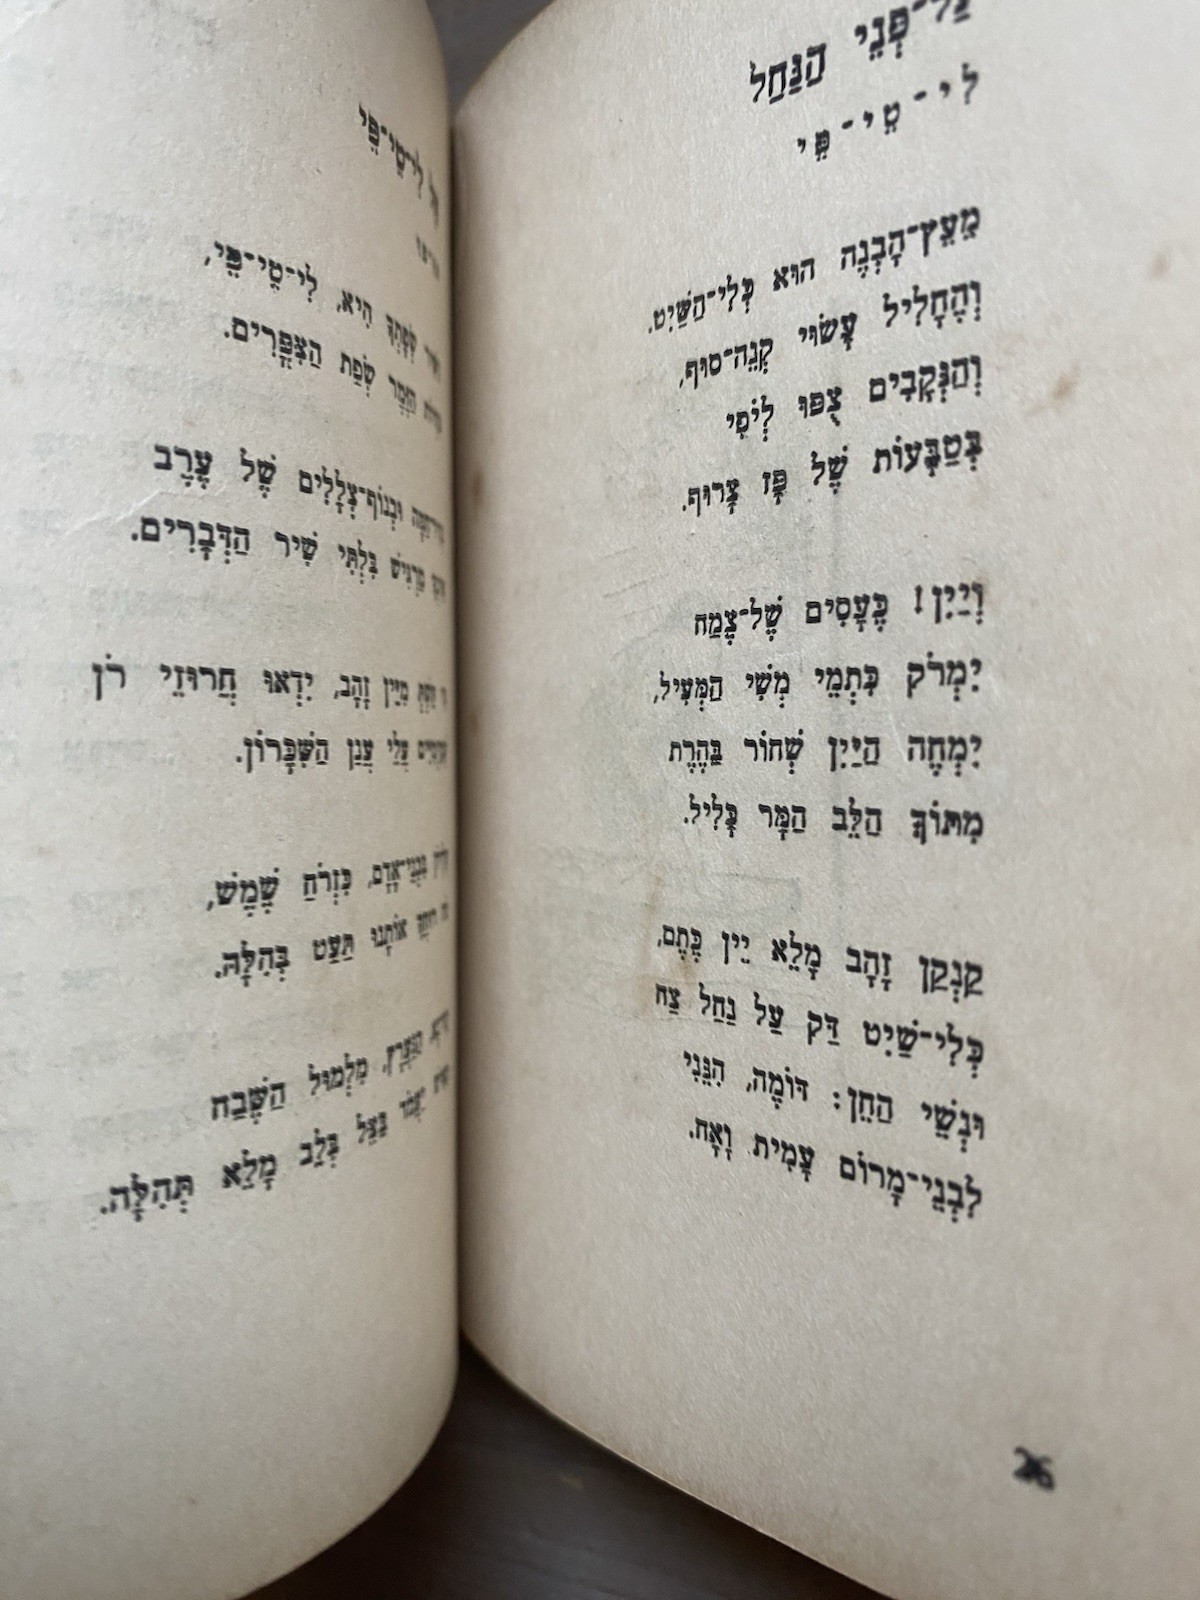 הַנַּחַל עַל־פְּנֵי
לִי־טַי־פֵּי
מֵעֵץ־הָבְנֶה הוּא כְּלִי־הַשַּׁיִט.
וְהֶחָלִיל עָשׂוּי קְנֵה־סוּף,
וְהַנְּקָבִים צֻפּוּ לְיֹפִי
בְּטַבְּעוֹת שֶׁל פָּז צָרוּף.
וְיַיִן! כֶּעָסִים שֶׁל־צֶמַח
יִמְרֹק כִּתְמֵי מְשִׁי הַמְּעִיל,
יִמְחֶה הַיַּיִן שְׁחוֹר בַּהֶרֶת
מִתּוֹךְ הַלֵּב הַמָּר כָּלִיל.
קַנְקַן זָהָב מָלֵא יֵין כֶּתֶם,
כְּלִי־שַׁיִט דַּק עַל נַחַל צַח
וּנְשֵׁי הַחֵן: דּוֹמֶה, הִנֵּנִי
לִבְנֵי־מָרוֹם עָמִית וָאָח.
26
לִי־טַי־פֵּי
שְׂפָתְךָ הִיא, לִי־טַי־פֵּי,
הַזֶּמֶר שְׂפַת הַצִּפֳּרִים.
וּכְנוֹף־צְלָלִים שֶׁל עֶרֶב
מַרְגִּישׁ בִּלְתִּי שִׁיר הַדְּבָרִים.
מִיֵּין זָהָב, יִדְאוּ חֲרוּזֵי רֹן
עֲלֵי עֲנַן הַשִּׁכָּרוֹן.
בִּבְנֵי־אָדָם, כִּזְרֹחַ שֶׁמֶשׁ,
אוֹתָנוּ תַּעַט בְּהִלָּהּ.
מִלְמוּל הַשֶּׁבַח
בְּצֵל בְּלֵב מָלֵא תְּהִלָּה.